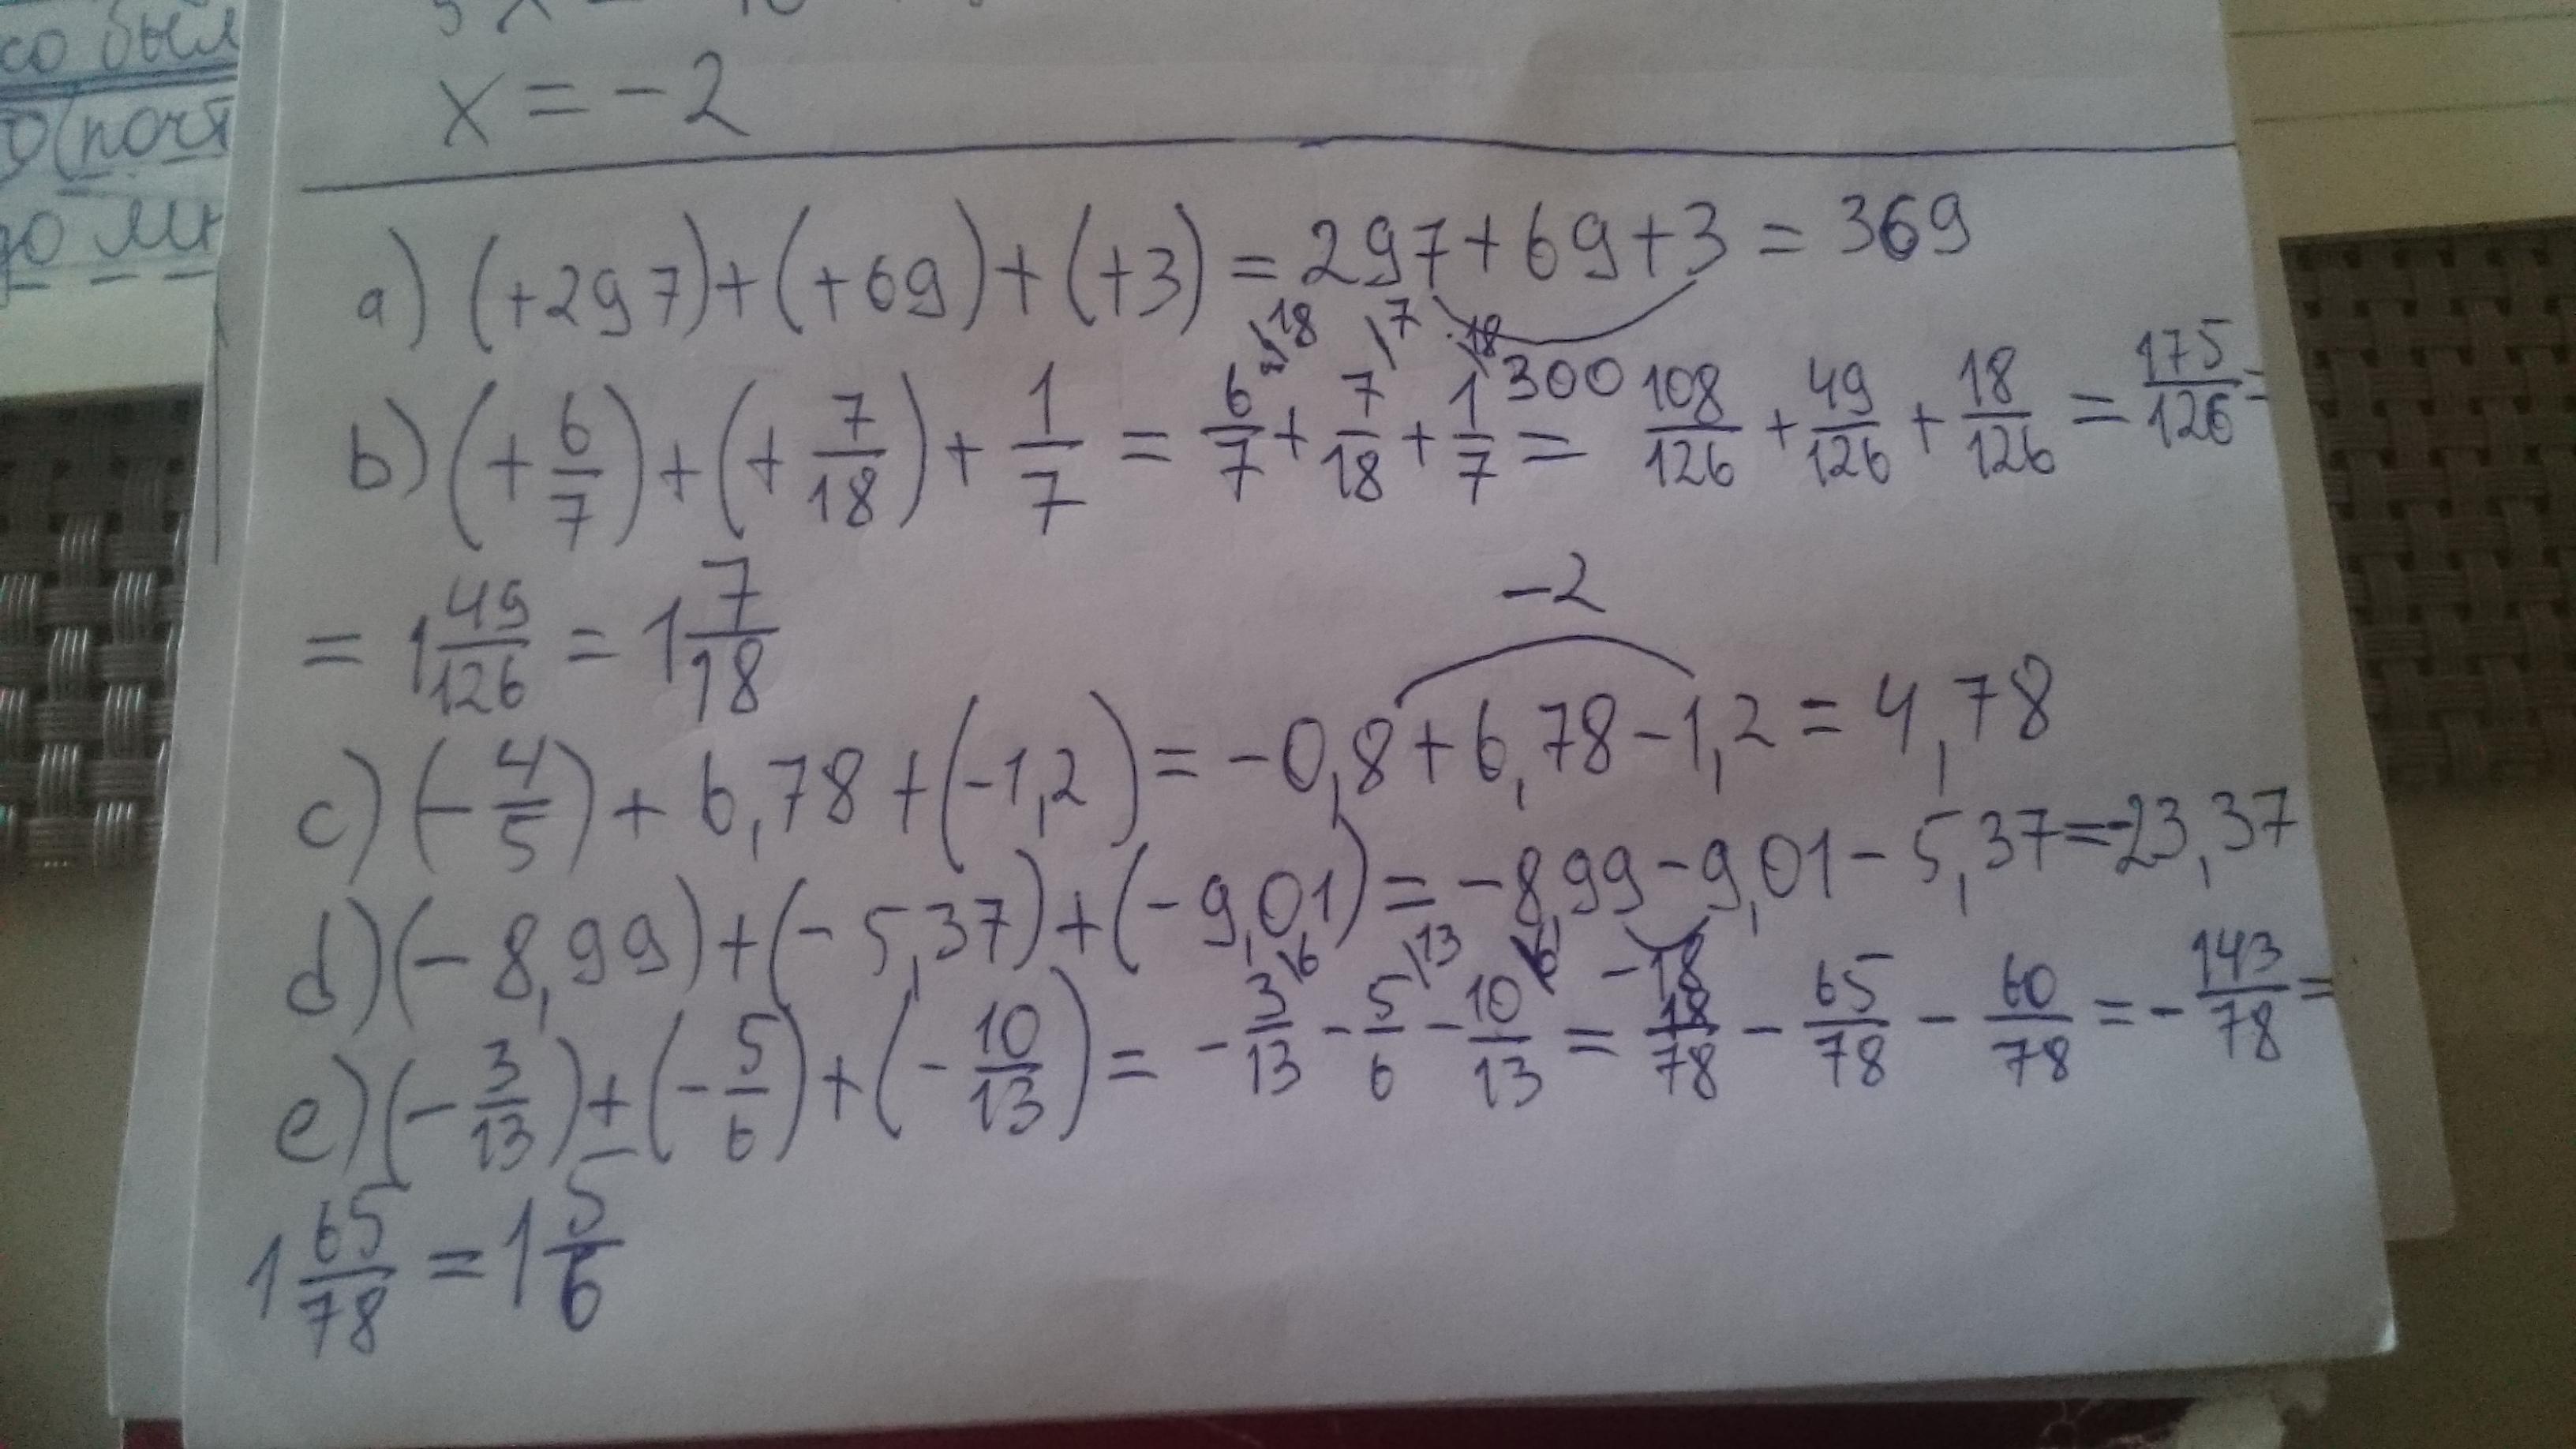 со был
о(почт
до мн
x = -2
a) (+297)+(+69)+(+3) = 297+69+3 = 369
300
b) (+6/7)+(+7/18)+1/7 = 6/7\18+7/18\7+1/7\18 = 108/126+49/126+18/126 = 175/126=
= 1 49/126 = 1 7/18
-2
c) (-4/5)+6,78+(-1,2) = -0,8+6,78-1,2 = 4,78
d) (-8,99)+(-5,37)+(-9,01) = -8,99-9,01-5,37=-23,37
-18
e) (-3/13)+(-5/6)+(-10/13) = -3/13\6-5/6\13-10/13\6 = 18/78-65/78-60/78=-143/78=
1 65/78 = 1 5/6